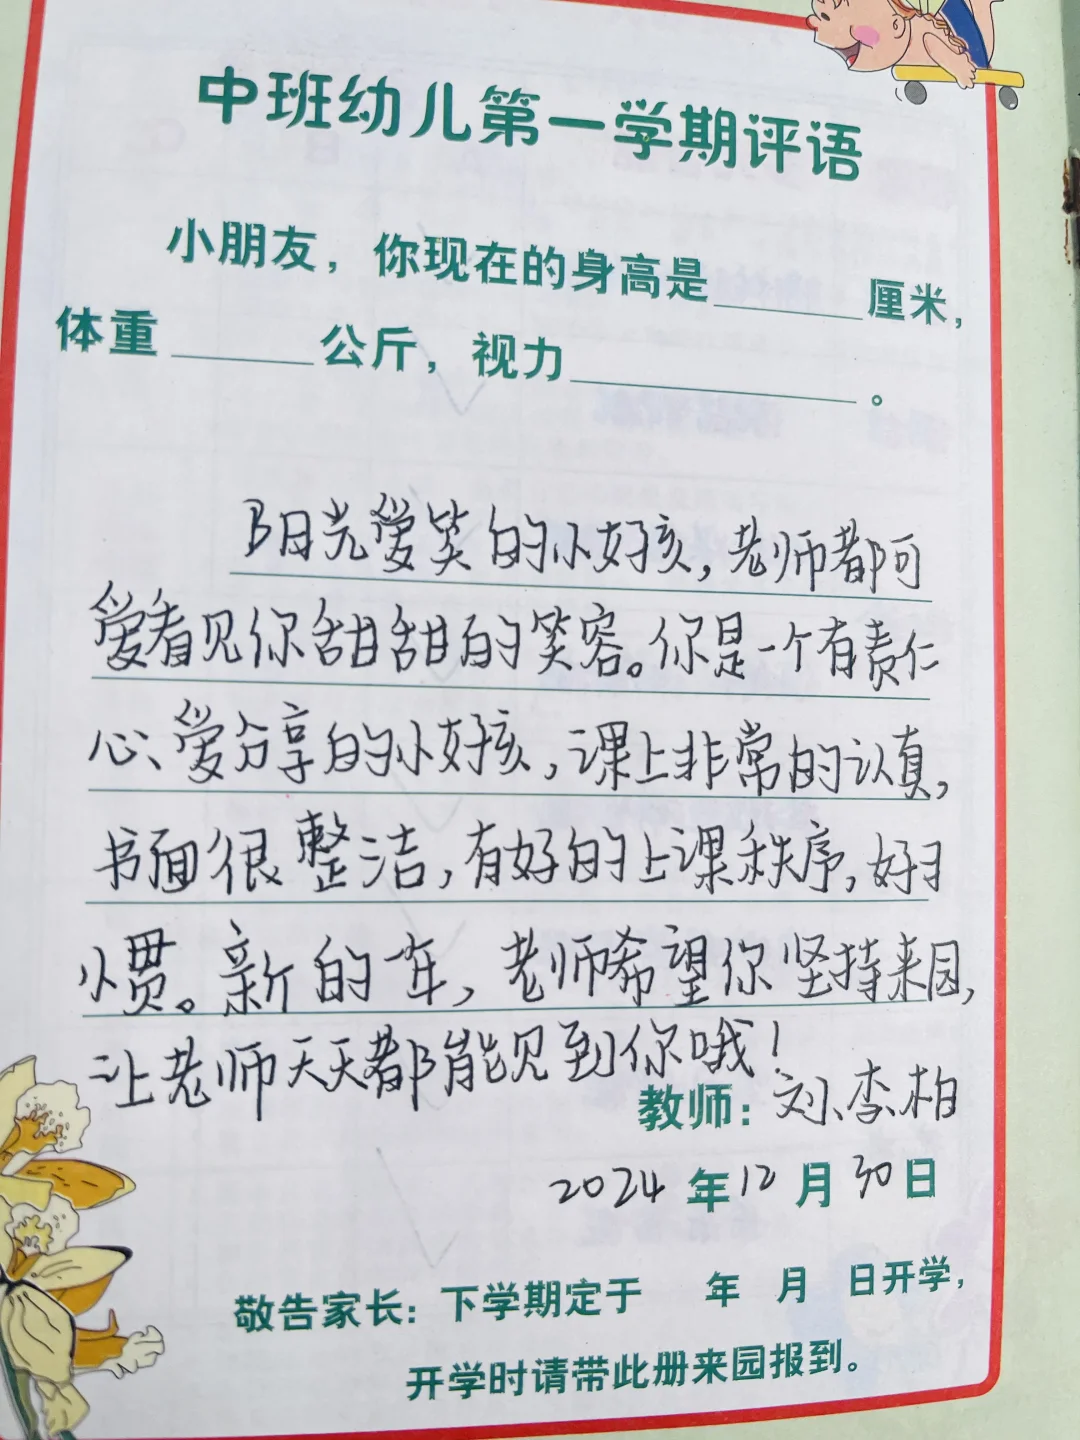 中班幼儿第一学期评语
小朋友，你现在的身高是______厘米，
体重______公斤，视力____________。
阳光爱笑的小好孩，老师都可
爱看见你甜甜的笑容。你是一个有责任
心、爱分享的小好孩，课上非常的认真，
书面很整洁，有好的上课秩序，好习
惯。新的一年，老师希望你坚持来园，
让老师天天都能见到你哦！
教师：刘、李、柏
2024年12月30日
敬告家长：下学期定于 年 月 日开学，
开学时请带此册来园报到。